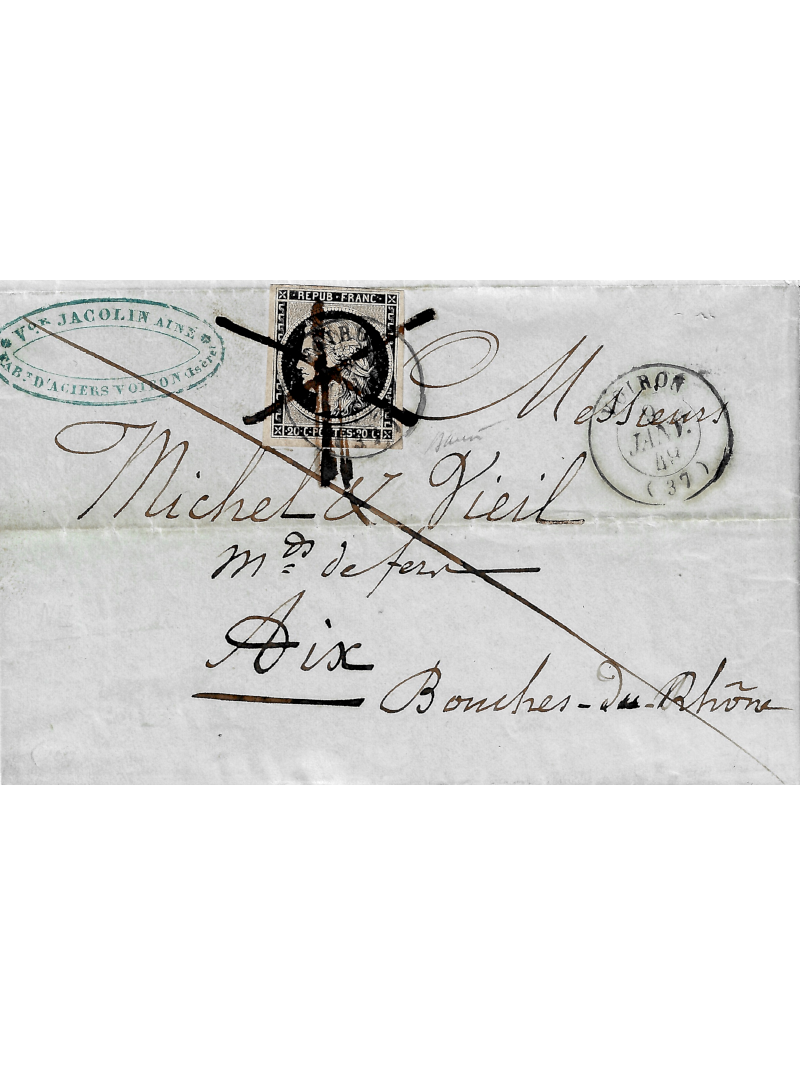 Vve JACOLIN AINÉ
FABt D'ACIERS VOIRON (Isère)
REPUB·FRANC
20·C·POSTES·20·C
VOIRON
VOIRON
JANV.
49
(37)
Messieurs
Michel & Vieil
Mds de fer
Aix
Bouches-du-Rhône